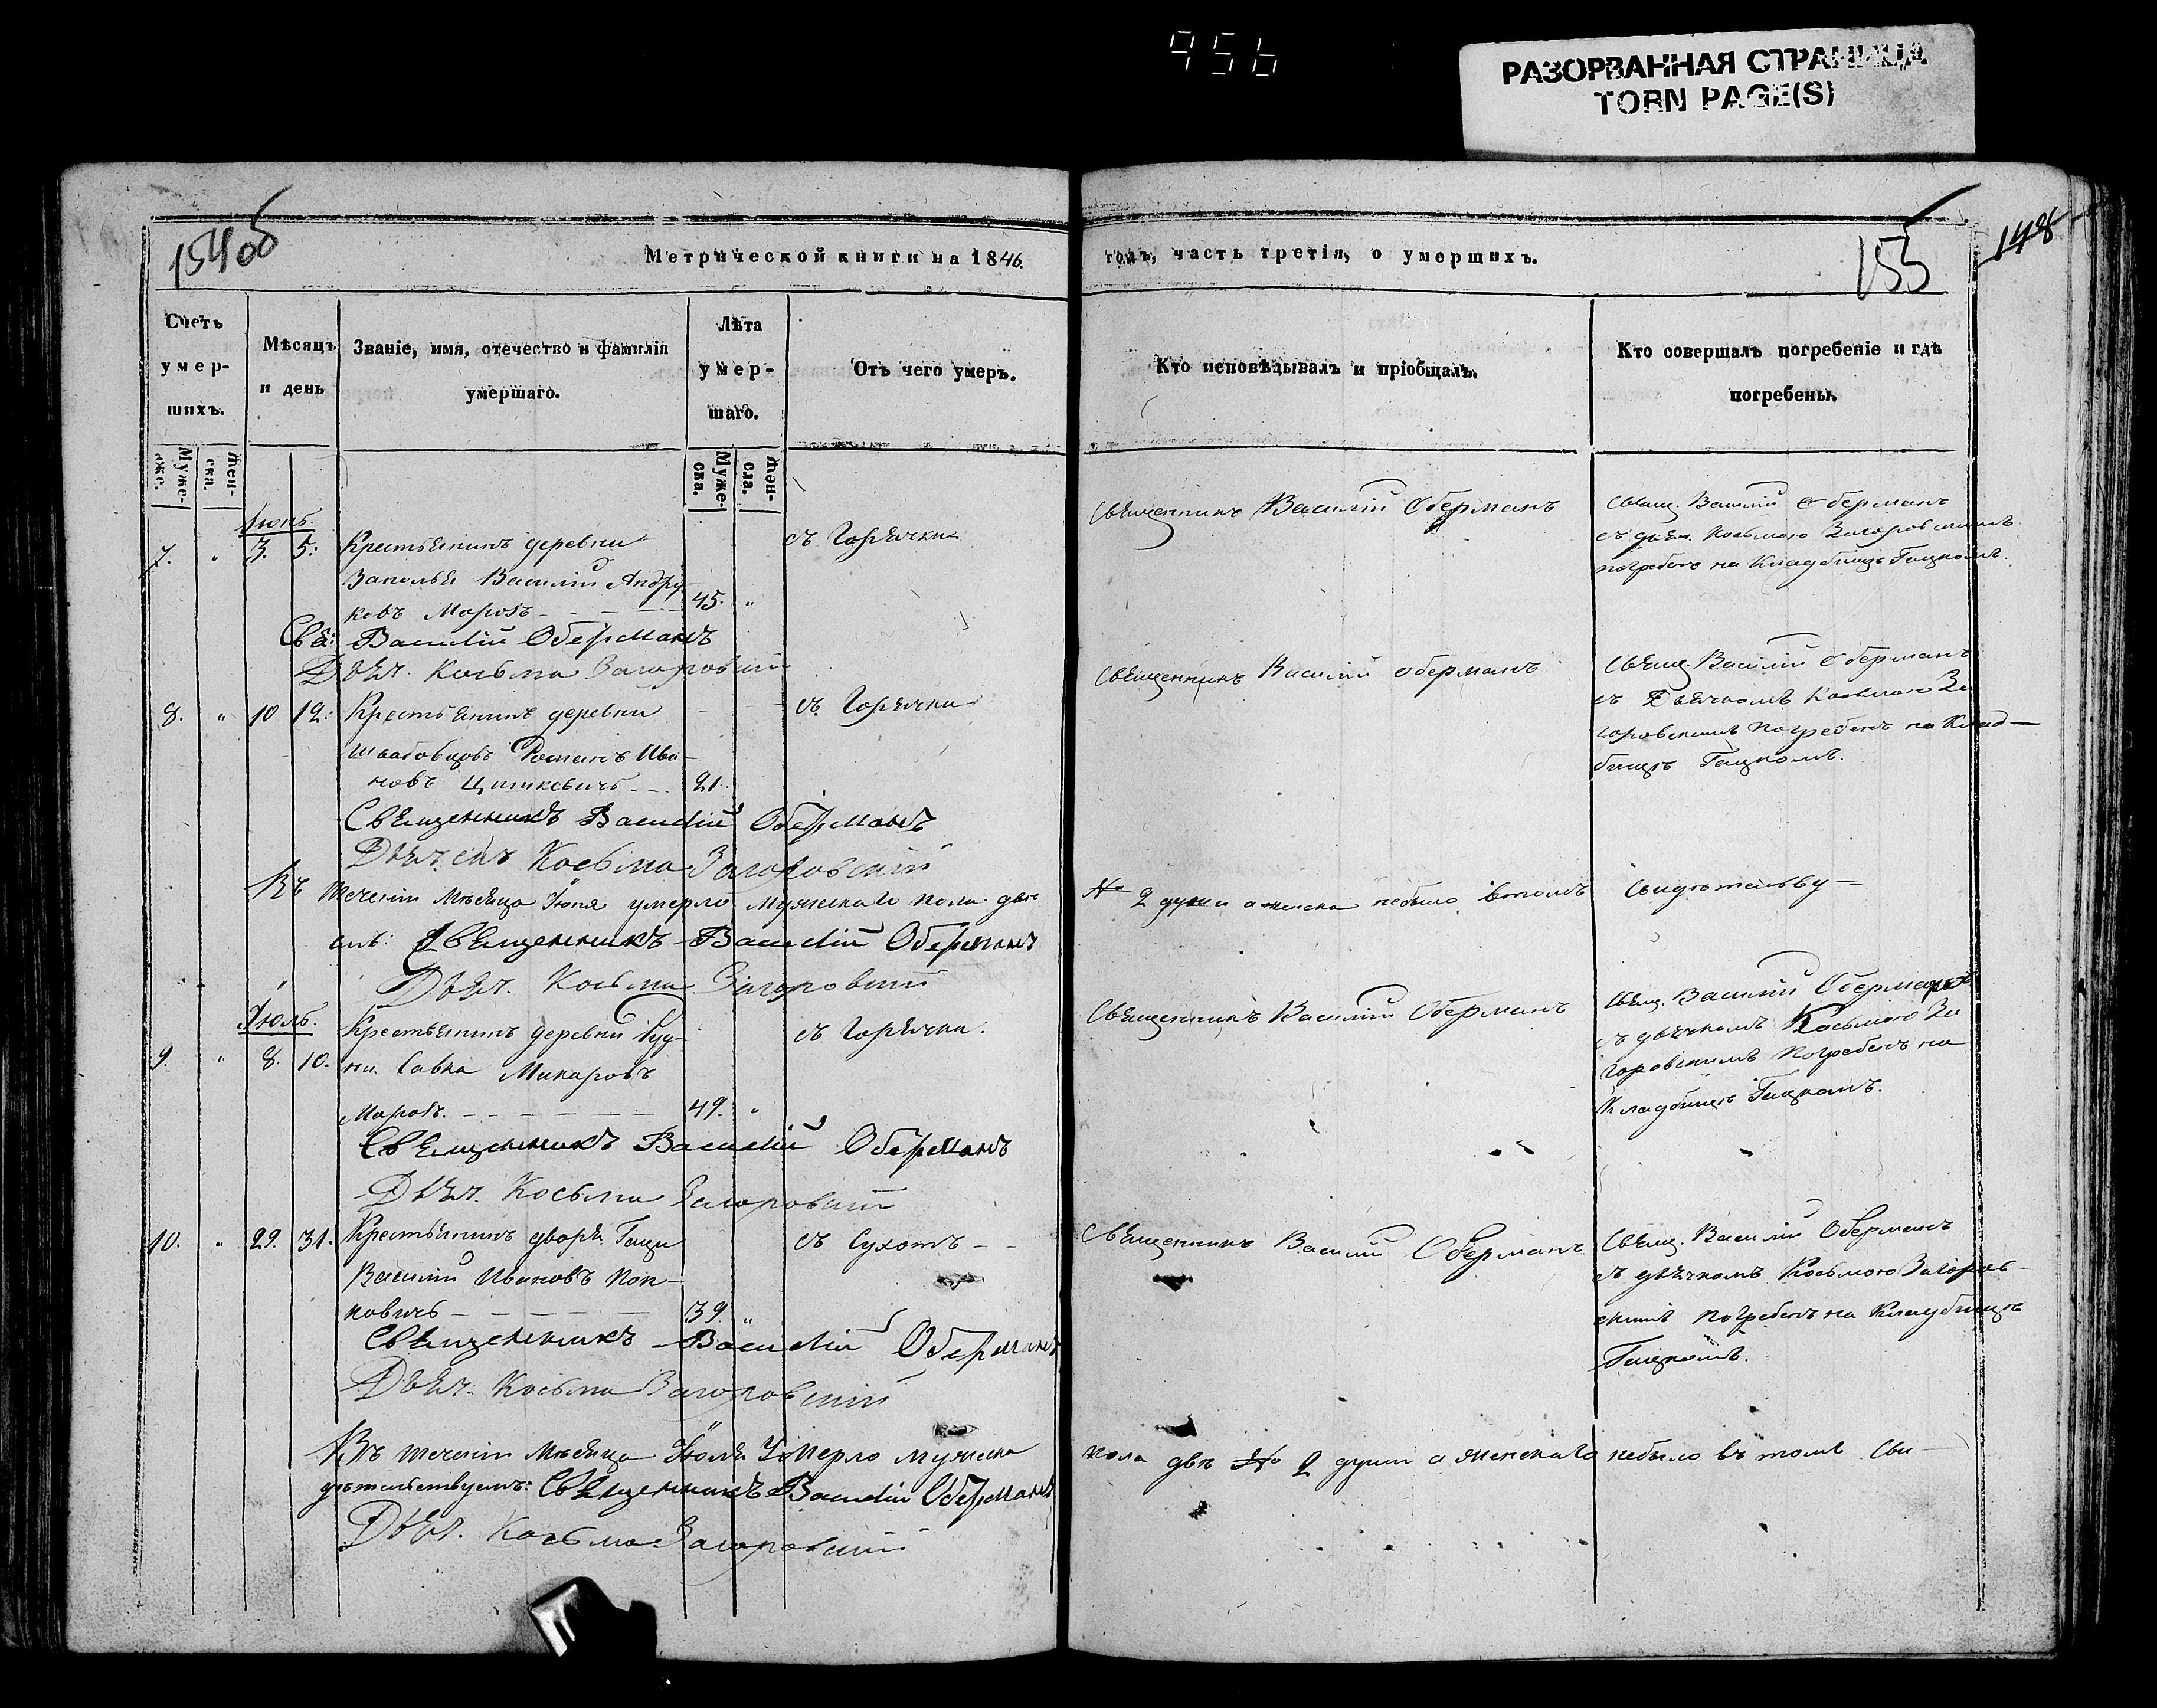 956
РАЗОРВАННАЯ СТРАНИЦА
TORN PAGE(S)
154об
Метрической книги на 1846.
годъ, часть третія, о умершихъ.
155
148
Счетъ умер-шихъ.
Мѣсяцъ и день
Званіе, имя, отечество и фамилія умершаго.
Лѣта умер-шаго.
Отъ чего умеръ.
Кто исповѣдывалъ и пріобщалъ.
Кто совершалъ погребеніе и гдѣ погребены.
Муже-
Жен-ска.
Муже-ска.
Жен-
Іюнь.
7. " 3. 5: Крестьянинъ деревни
Заполья Василій Андру-
ковъ Морозъ 45. "
съ Горячки
Священникъ Василій Оберманъ
Свящ. Василій Оберманъ
съ дьяч. Козьмою Загоровскимъ
погребенъ на Кладбищѣ Гацкомъ.
Свя: Василій Оберманъ
Дьяч. Косьма Загоровскій
8. " 10 12: Крестьянинъ деревни
Романъ Ива-
новъ 21.
съ Горячки
Священникъ Василій Оберманъ
Свящ. Василій Оберманъ
съ Дьячкомъ Косьмою За
горовскимъ погребенъ на Клад-
бищѣ Гацкомъ.
Священникъ Василій Оберманъ
Дьячекъ Косьма Загоровскій
Въ теченіи мѣсяца Іюня умерло мужескаго пола двѣ
№ 2 души а женска небыло втомъ свидѣтельству-
емъ: Священникъ Василій Оберманъ
Дьяч. Косьма Загоровскій
Іюль.
9. " 8. 10. Крестьянинъ деревни Руд-
ни Савка Макаровъ
Морозъ. 49. "
съ Горячки.
Священникъ Василій Оберманъ
Свящ. Василій Оберманъ
съ дьячкомъ Косьмою За
горовскимъ погребенъ на
Кладбищѣ Гацкомъ.
Священникъ Василій Оберманъ
Дьяч. Косьма Загоровскій
10. " 29. 31. Крестьянинъ двора Гаци
Василій Ивановъ Поп-
ковичъ 39. "
съ Сухотъ
Священникъ Василій Оберманъ
Свящ. Василій Оберманъ
съ дьячкомъ Косьмою Загоров-
скимъ погребенъ на Кладбищѣ
Гацкомъ.
Священникъ Василій Оберманъ
Дьяч. Косьма Загоровскій
Въ теченіи мѣсяца Іюля Умерло мужеска
пола двѣ № 2 души а женскаго небыло въ томъ сви-
дѣтельствуемъ: Священникъ Василій Оберманъ
Дьяч. Косьма Загоровскій